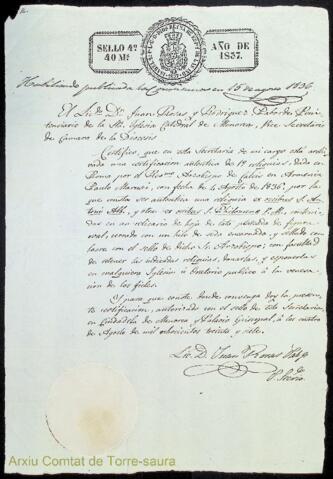 SELLO 4º
40 Ms
AÑO DE
1837.
Habilitado, publicada la Constitucion en 15 de agosto 1836
El Licdo. Dn. Juan Pionas y Rodriguez Pbro.
de la Sta. Iglesia Catedral de Menorca, Vice Secretario
de Camara de la Diocesis
Certifico, que en esta Secretaria de mi cargo está archi-
vada una certificacion autentica de 19 reliquias, dada en
Roma por el Arzobispo de en Armenia
Paulo con fecha de 4 Agosto de 1836, por la que
consta ser autentica una reliquia ex ossibus S. An-
tonii Abb, y otra ex conteni-
das en un relicario de hoja de lata plateada de figura
oval, cerrado con un hilo de seda encarnada, y sellado con
lacre con el sello de dicho Sr. Arzobispo: con facultad
de retener las indicadas reliquias, donarlas, y esponerlas
en cualquiera Iglesia ú Oratorio publico á la veneracion
de los fieles.
Y para que conste donde convenga doy la presen-
te certificacion, autorizada con el sello de esta Secretaria
en Ciudadela de Menorca y Palacio Episcopal, á los cuatro
de Agosto de mil ochocientos treinta y siete.
Lic. D. Juan Pionas Pbro.
V. Srio.
Arxiu Comtat de Torre-saura